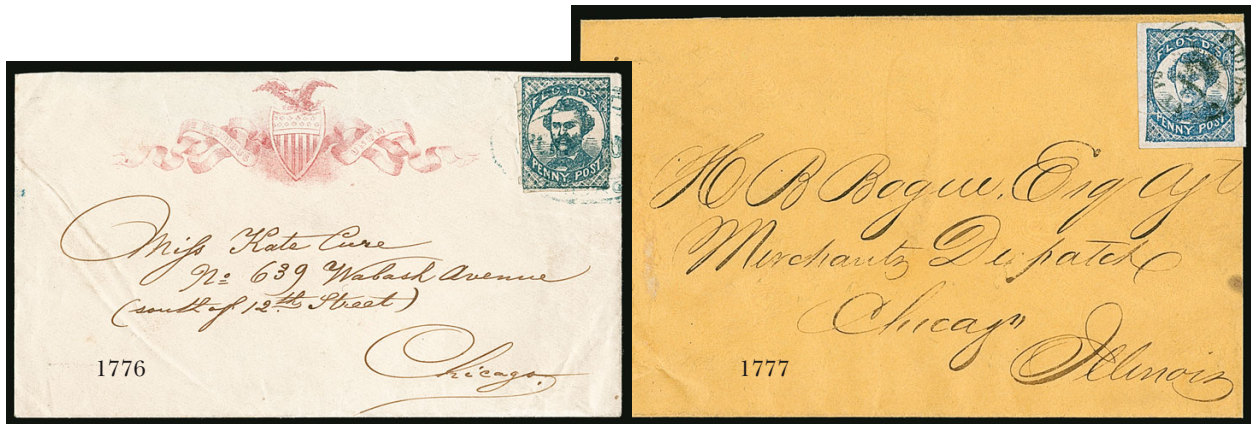 FLOYD'S
PENNY POST
Miss Kate Cure
No 639 Wabash Avenue
(south of 12th Street)
Chicago.
1776
FLOYD'S
PENNY POST
H B Bogue, Esq Agt
Merchants Dispatch
Chicago
Illinois
1777